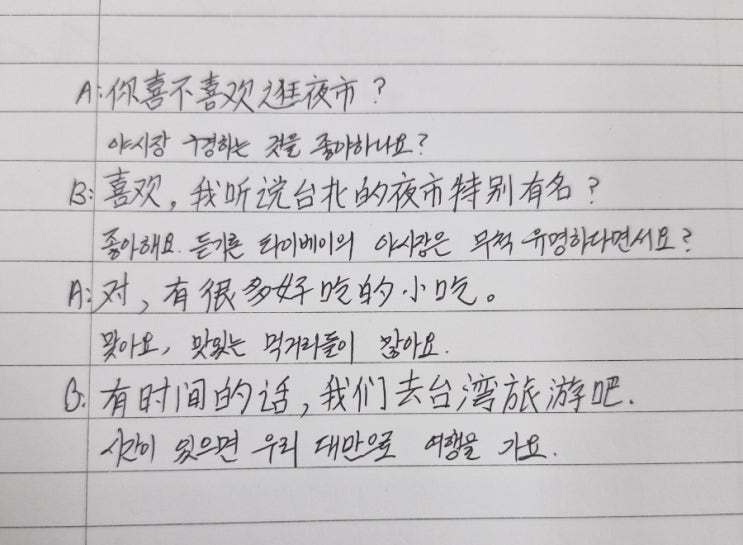 A: 你喜不喜欢逛夜市？
야시장 구경하는 것을 좋아하나요?
B: 喜欢，我听说台北的夜市特别有名？
좋아해요. 듣기론 타이베이의 야시장은 무척 유명하다면서요?
A: 对，有很多好吃的小吃。
맞아요, 맛있는 먹거리들이 많아요.
B: 有时间的话，我们去台湾旅游吧.
시간이 있으면 우리 대만으로 여행을 가요.